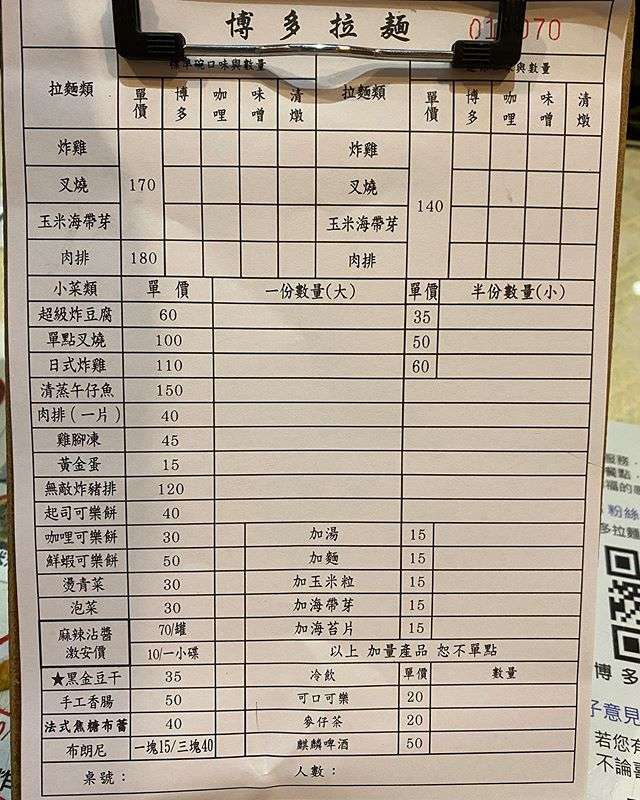 博多拉麵
拉麵類 單價 博多 咖哩 味噌 清燉 拉麵類 單價 博多 咖哩 味噌 清燉
炸雞 炸雞
叉燒 170 叉燒 140
玉米海帶芽 玉米海帶芽
肉排 180 肉排
小菜類 單價 一份數量(大) 單價 半份數量(小)
超級炸豆腐 60 35
單點叉燒 100 50
日式炸雞 110 60
清蒸午仔魚 150
肉排(一片) 40
雞腳凍 45
黃金蛋 15
無敵炸豬排 120
起司可樂餅 40
咖哩可樂餅 30 加湯 15
鮮蝦可樂餅 50 加麵 15
燙青菜 30 加玉米粒 15
泡菜 30 加海帶芽 15
麻辣沾醬 70/罐 加海苔片 15
激安價 10/一小碟 以上 加量產品 恕不單點
★黑金豆干 35 冷飲 單價 數量
手工香腸 50 可口可樂 20
法式焦糖布蕾 40 麥仔茶 20
布朗尼 一塊15/三塊40 麒麟啤酒 50
桌號： 人數：
粉絲
博多
子意見
若您有
不論喜